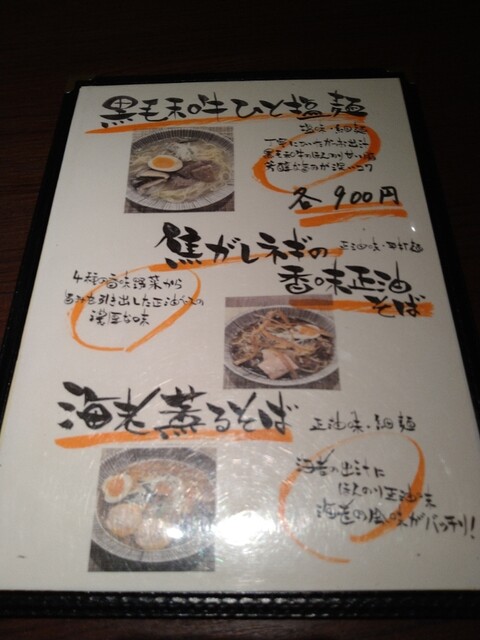 黒毛和牛ひと塩麺
塩味・細麺
丁寧にひいたがらお出汁
黒毛和牛のほんのり甘い脂
芳醇な
深いコク
各900円
焦がしネギの
正油味・
香味正油
そば
4種の香味野菜から
旨みを引き出した正油ベースの
濃厚な味
海老薫るそば
正油味・細麺
海老の出汁に
ほんのり正油味
海老の風味がバッチリ!